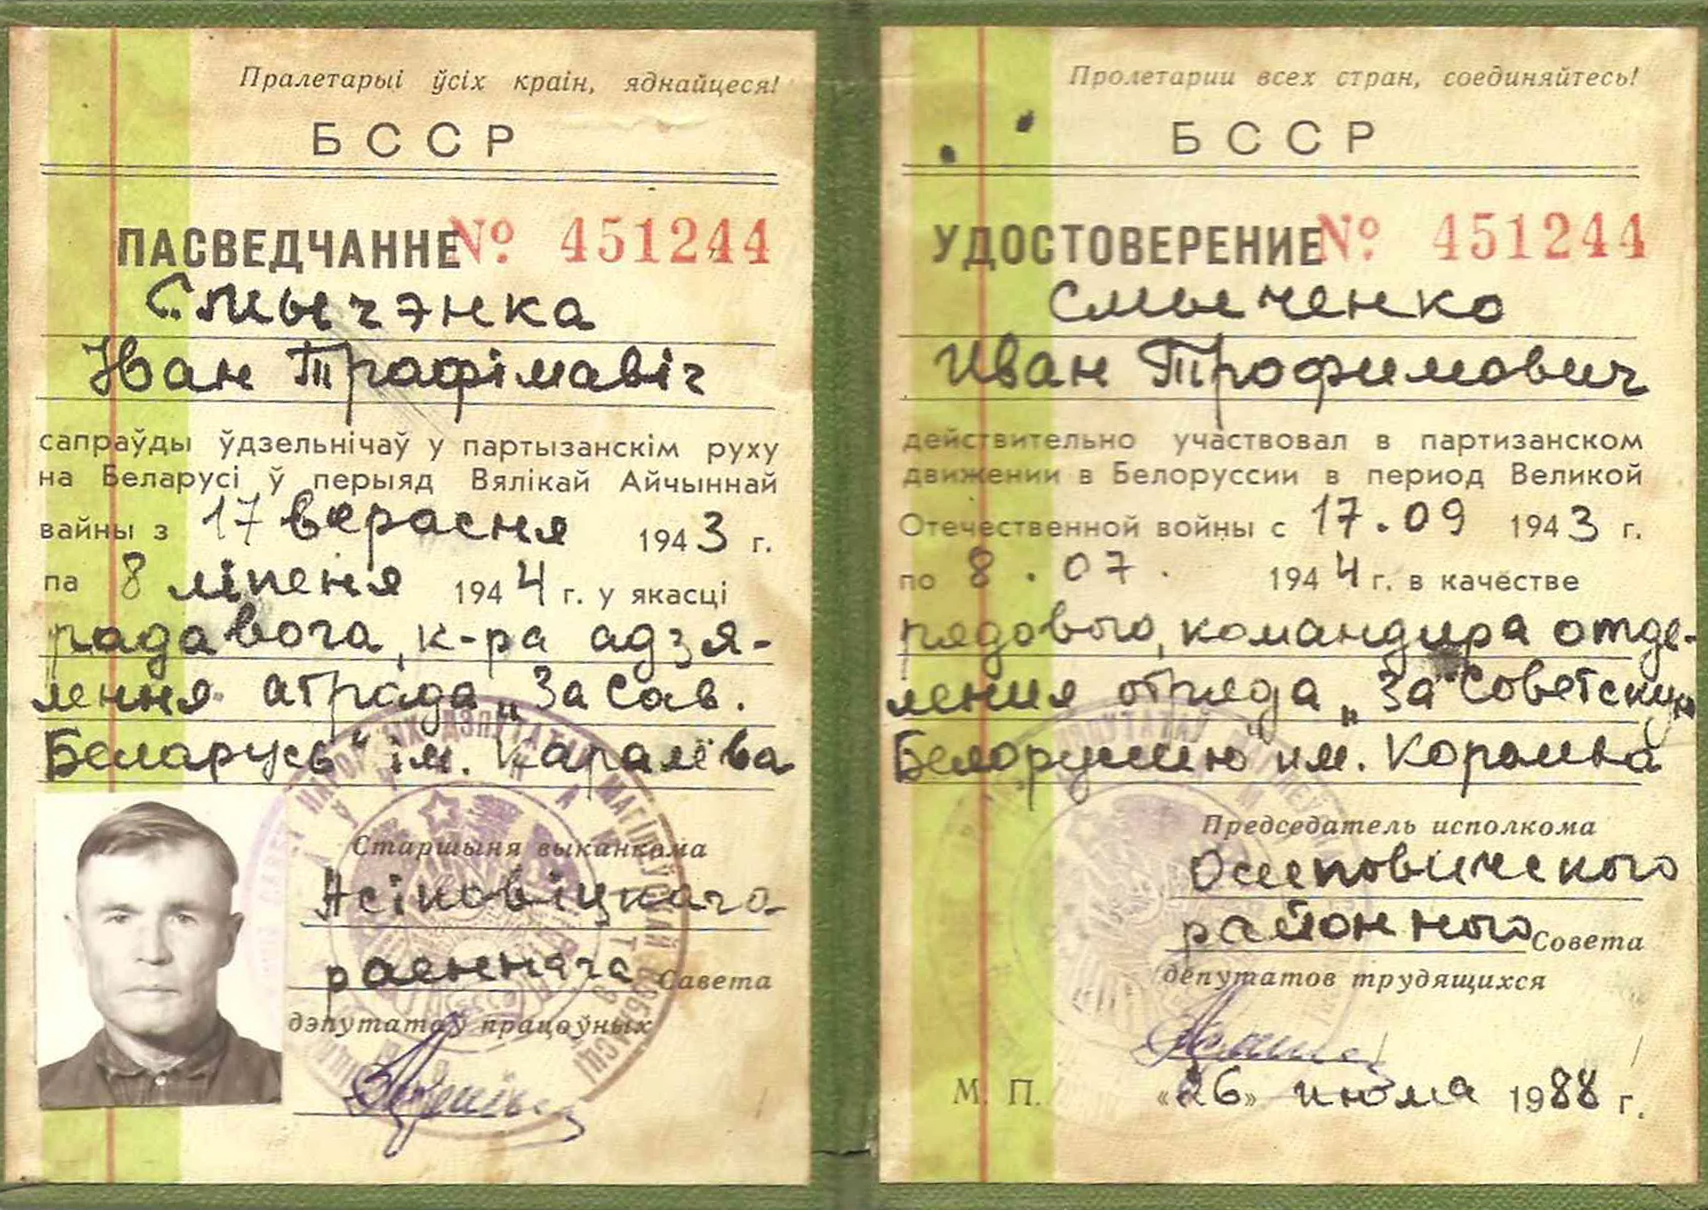 Пралетарыі ўсіх краін, яднайцеся!
БССР
ПАСВЕДЧАННЕ № 451244
Смычэнка
Іван Трафімавіч
сапраўды ўдзельнічаў у партызанскім руху
на Беларусі ў перыяд Вялікай Айчыннай
вайны з 17 верасня 1943 г.
па 8 ліпеня 1944 г. у якасці
радавога, к-ра адзя-
лення атрада „За Сав.
Беларусь" ім. Каралёва
Старшыня выканкома
Асіповіцкага
раённага Савета
дэпутатаў працоўных
Пролетарии всех стран, соединяйтесь!
БССР
УДОСТОВЕРЕНИЕ № 451244
Смыченко
Иван Трофимович
действительно участвовал в партизанском
движении в Белоруссии в период Великой
Отечественной войны с 17.09 1943 г.
по 8.07. 1944 г. в качестве
рядового, командира отде-
ления отряда „За Советскую
Белоруссию" им. Королева
Председатель исполкома
Осиповичского
районного Совета
депутатов трудящихся
М. П. «26» июля 1988 г.